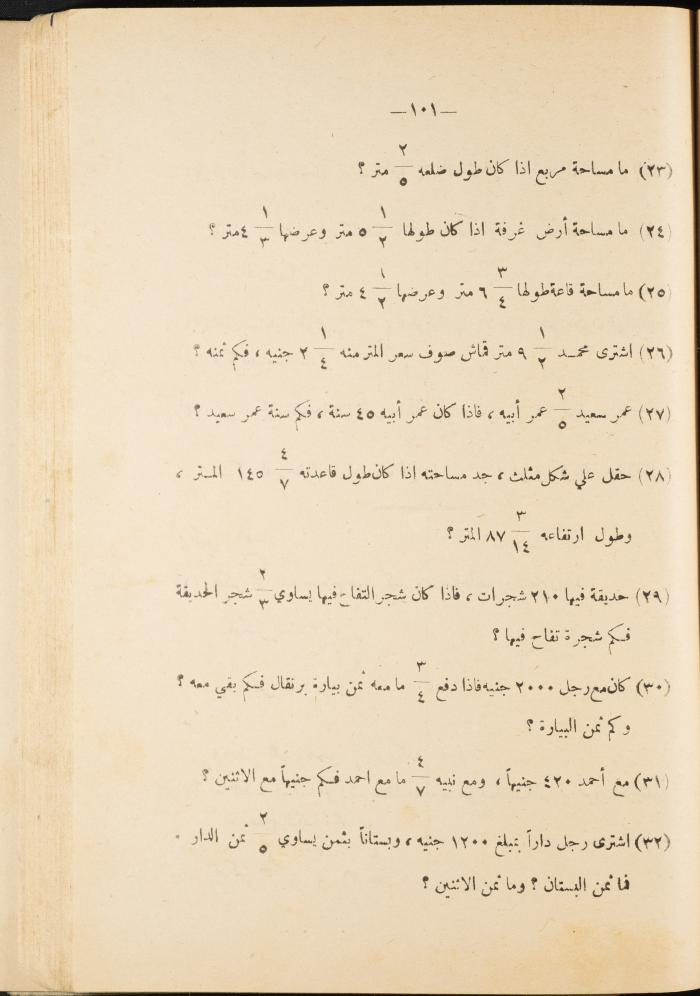 —١٠١—
(٢٣) ما مساحة مربع اذا كان طول ضلعه ٢/٥ متر ؟
(٢٤) ما مساحة أرض غرفة اذا كان طولها ١/٢ ٥ متر وعرضها ١/٣ ٤ متر ؟
(٢٥) ما مساحة قاعة طولها ٣/٤ ٦ متر وعرضها ١/٢ ٤ متر ؟
(٢٦) اشترى محمد ١/٢ ٩ متر قماش صوف سعر المتر منه ١/٤ ٢ جنيه ، فكم ثمنه ؟
(٢٧) عمر سعيد ٢/٥ عمر أبيه ، فاذا كان عمر أبيه ٤٥ سنة ، فكم سنة عمر سعيد ؟
(٢٨) حقل علي شكل مثلث ، جد مساحته اذا كان طول قاعدته ٤/٧ ١٤٥ المتر ،
وطول ارتفاعه ٣/١٤ ٨٧ المتر ؟
(٢٩) حديقة فيها ٢١٠ شجرات ، فاذا كان شجر التفاح فيها يساوي ٢/٣ شجر الحديقة
فكم شجرة تفاح فيها ؟
(٣٠) كان مع رجل ٢٠٠٠ جنيه فاذا دفع ٣/٤ ما معه ثمن بيارة برتقال فكم بقي معه ؟
وكم ثمن البيارة ؟
(٣١) مع أحمد ٤٢٠ جنيهاً ، ومع نبيه ٤/٧ ما مع احمد فكم جنيهاً مع الاثنين ؟
(٣٢) اشترى رجل داراً بمبلغ ١٢٠٠ جنيه ، وبستاناً بثمن يساوي ٢/٥ ثمن الدار .
فما ثمن البستان ؟ وما ثمن الاثنين ؟